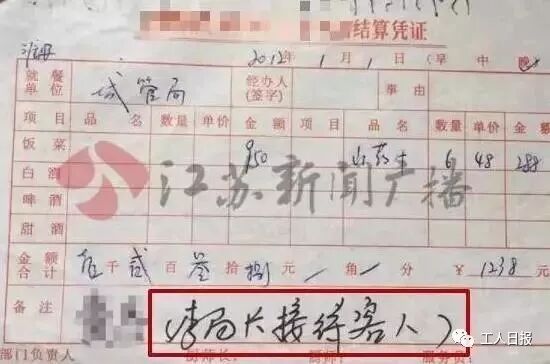 结算凭证
2012年1月1日(早 中 晚
就餐单位 城管局 经办人(签字) 事由
项目 品名 数量 单价 金额 项目 品名 数量 单价 金额
饭菜 950 6 48 288
白酒
江苏新闻广播
啤酒
甜酒
金额合计 千贰百叁拾捌元/角/分 ¥1238元
备注 (李局长接待客人)
部门负责人 厨师长: 服务员:
工人日报